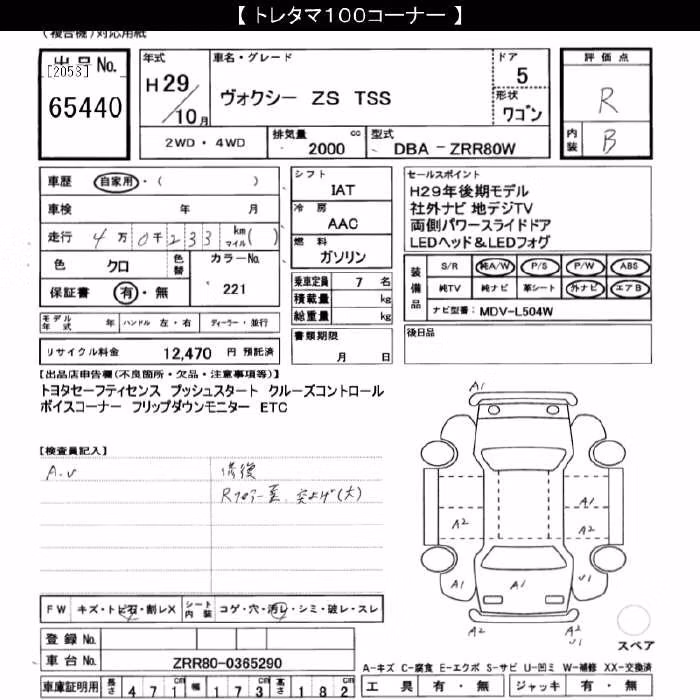 【 トレタマ１００コーナー 】
(複合機)対応用紙
出品No.
[2053]
65440
年式
H29
10月
車名・グレード
ヴォクシー ZS TSS
ドア
5
形状
ワゴン
2WD・4WD
排気量 cc
2000
型式
DBA - ZRR80W
評価点
R
内装
B
車歴 自家用・( )
車検 年 月
走行 4万0千233 km マイル( )
色 クロ 色替
カラーNo.
221
保証書 有・無
モデル年式 年 ハンドル 左・右 ディーラー・並行
リサイクル料金 12,470 円 預託済
シフト
IAT
冷房
AAC
燃料
ガソリン
乗車定員 7 名
積載量 kg
総重量 kg
書類期限
月 日
セールスポイント
H29年後期モデル
社外ナビ 地デジTV
両側パワースライドドア
LEDヘッド＆LEDフォグ
装備品
S/R 純A/W P/S P/W ABS
純TV 純ナビ 革シート 外ナビ エアB
ナビ型番: MDV-L504W
後日品
【出品店申告欄(不良箇所・欠品・注意事項等)】
トヨタセーフティセンス プッシュスタート クルーズコントロール
ボイスコーナー フリップダウンモニター ETC
【検査員記入】
A.U
修復
Rフロアー歪、突上げ(大)
FW キズ・トビ石・割レX
シート内装 コゲ・穴・汚レ・シミ・破レ・スレ
登録No.
車台No. ZRR80-0365290
車庫証明用 長さ 471cm 幅 173cm 高さ 182cm
A1
A1
A2
A2
A1
A1
U1
A2
A2
U1
スペア
A-キズ C-腐食 E-エクボ S-サビ U-凹ミ W-補修 XX-交換済
工具 有・無 ジャッキ 有・無